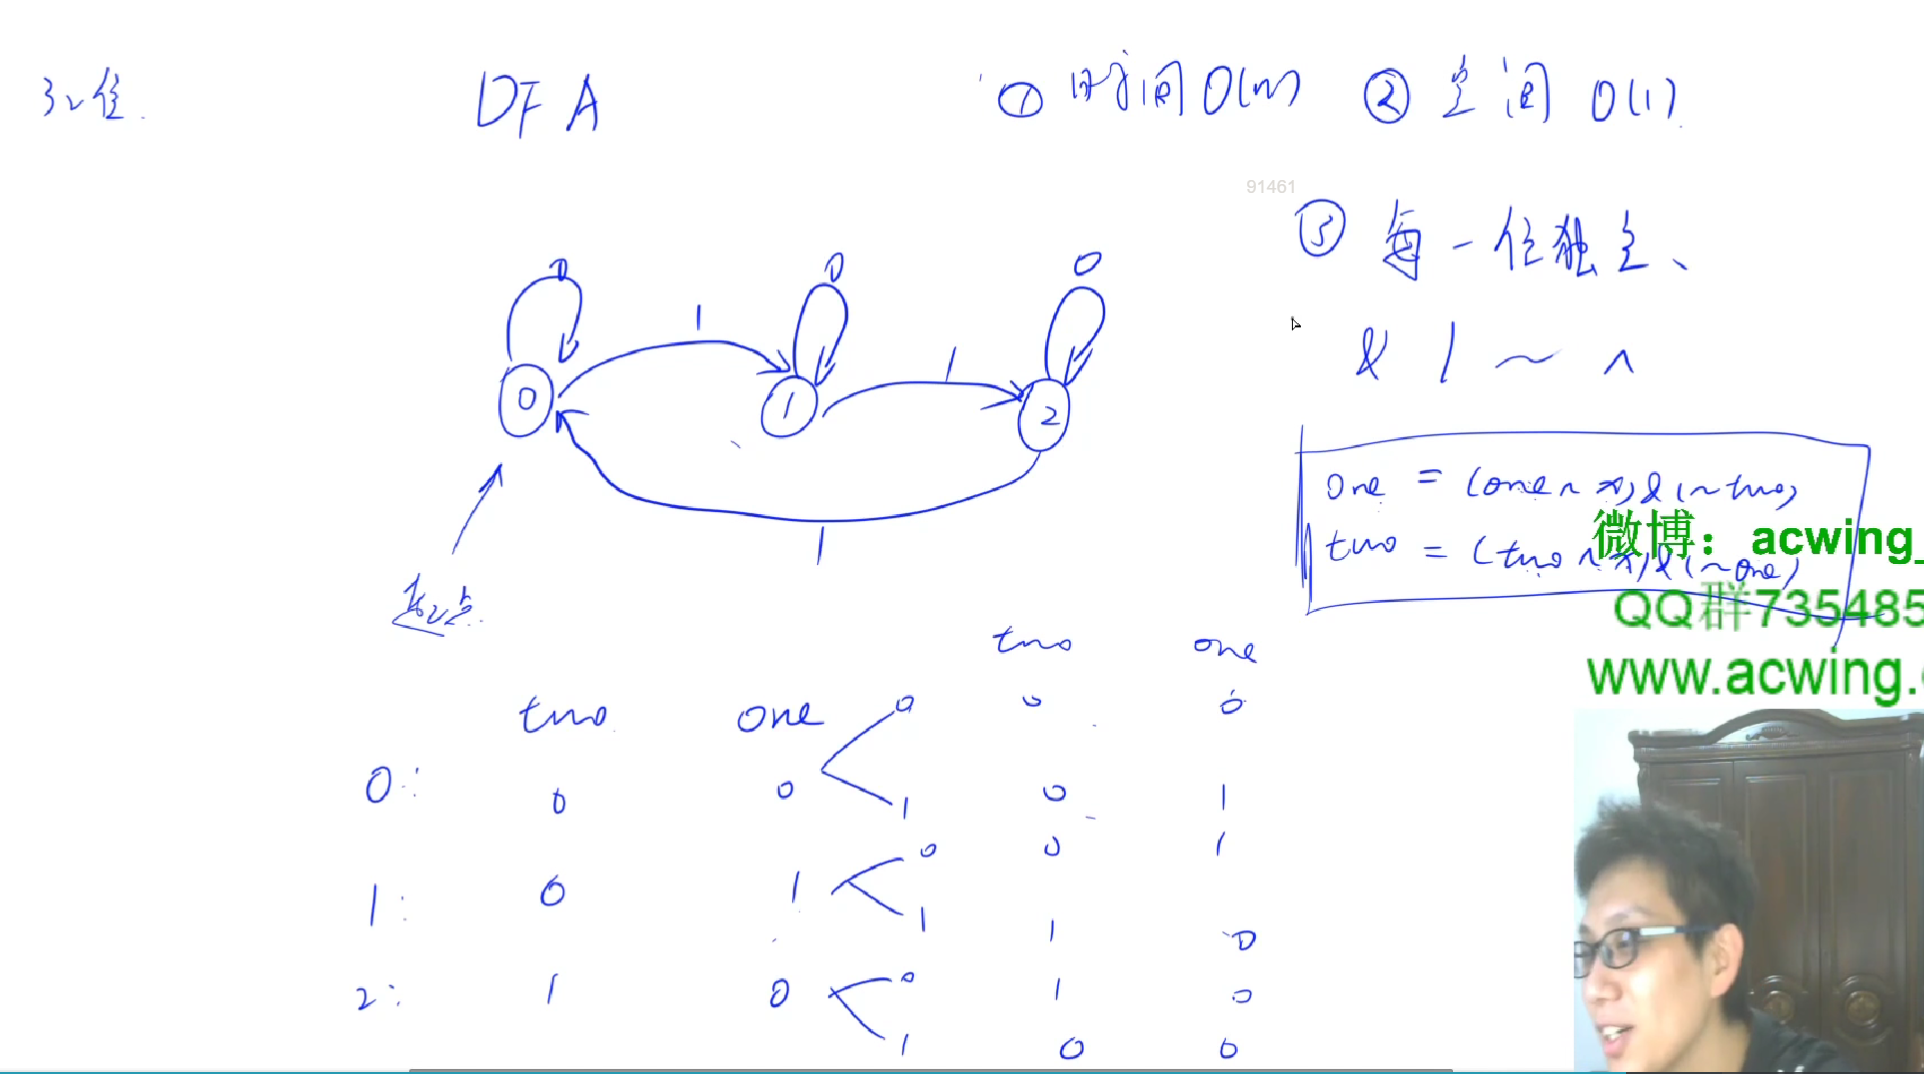 32位. DFA ① 时间 O(n) ② 空间 O(1)
91461
③ 每一位独立、
0 0 0
1 1
& | ~ ^
0 1 2
one = (one ^ x) & (~two)
two = (two ^ x) & (~one)
1
微博：acwing_
QQ群735485
www.acwing.
起点.
two one
two one 0 0 0
0: 0 0 1 0 1
0 0 1
1: 0 1
1 1 0
2: 1 0 0 1 0
1 0 0